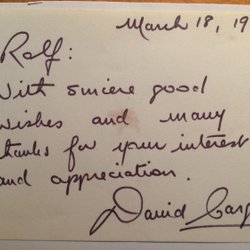 March 18, 19
Rolf:
With sincere good
wishes and many
thanks for your interest
and appreciation.
David